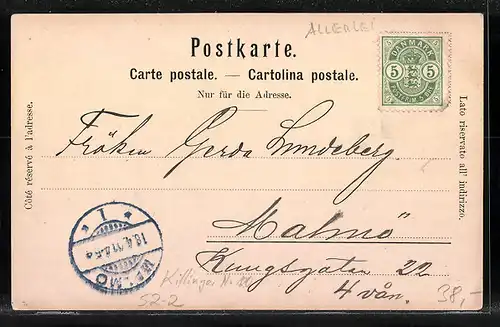 ALLERLEI
Postkarte.
Carte postale. — Cartolina postale.
Nur für die Adresse.
DANMARK
5 5
Côté réservé à l'adresse.
Lato riservato all' indirizzo.
Fröken Gerda Lundeberg.
Malmö
Kungsgatan 22
4 vån.
1
MALMÖ
Killinger N.
52-2
38,-